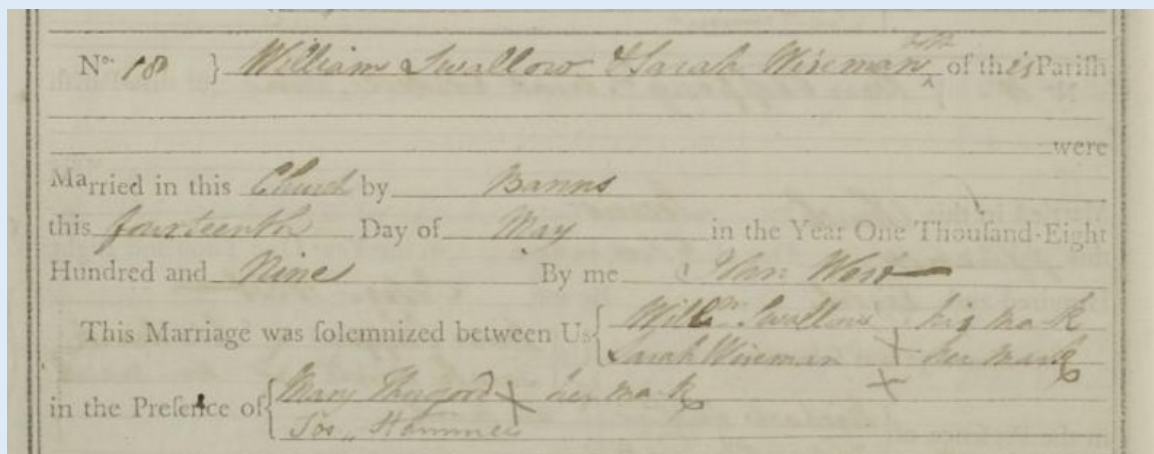 both
No. 18 } William Swallow & Sarah Wiseman ^ of this Pariſh
were
Married in this Church by Banns
this fourteenth Day of May in the Year One Thouſand-Eight
Hundred and Nine By me John West
This Marriage was ſolemnized between Us { Willm. Swallow X his mark
Sarah Wiseman X her mark
in the Preſence of { Mary X her mark
Jos,, Hammer